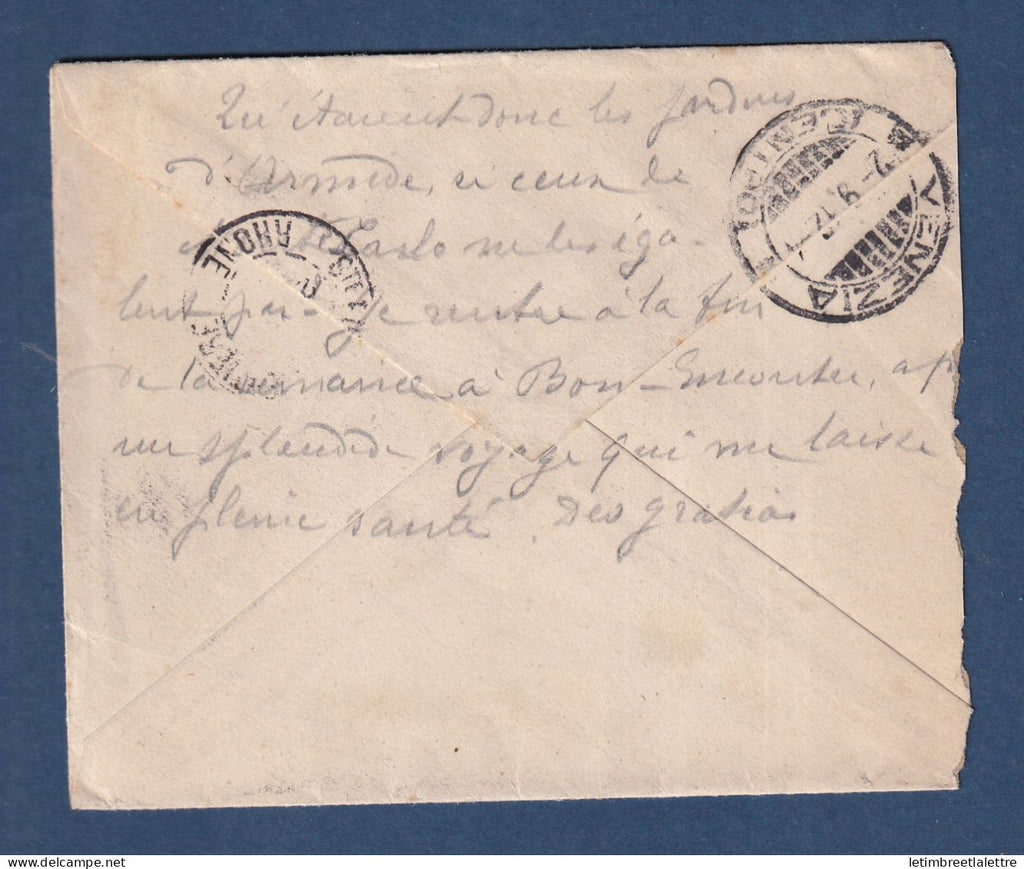 Qu'étaient donc les jardins
d'Armide, si ceux de
Carlo ne les éga-
lent pas - Je rentre à la fin
de la semaine à Bon-Encontre, ap
un splendide voyage qui me laisse
en pleine santé. Deo gratias
VENEZIA
RHONE
letimbreetlalettre.com